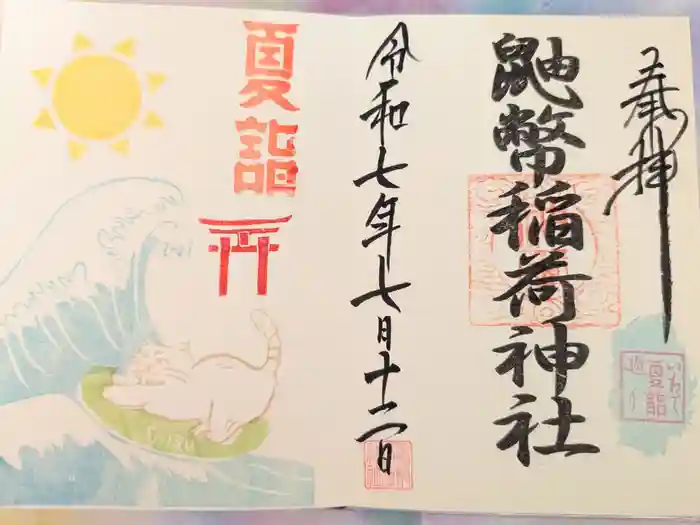 奉拝
鼬幣稲荷神社
令和七年七月十二日
夏詣
いわて
夏詣